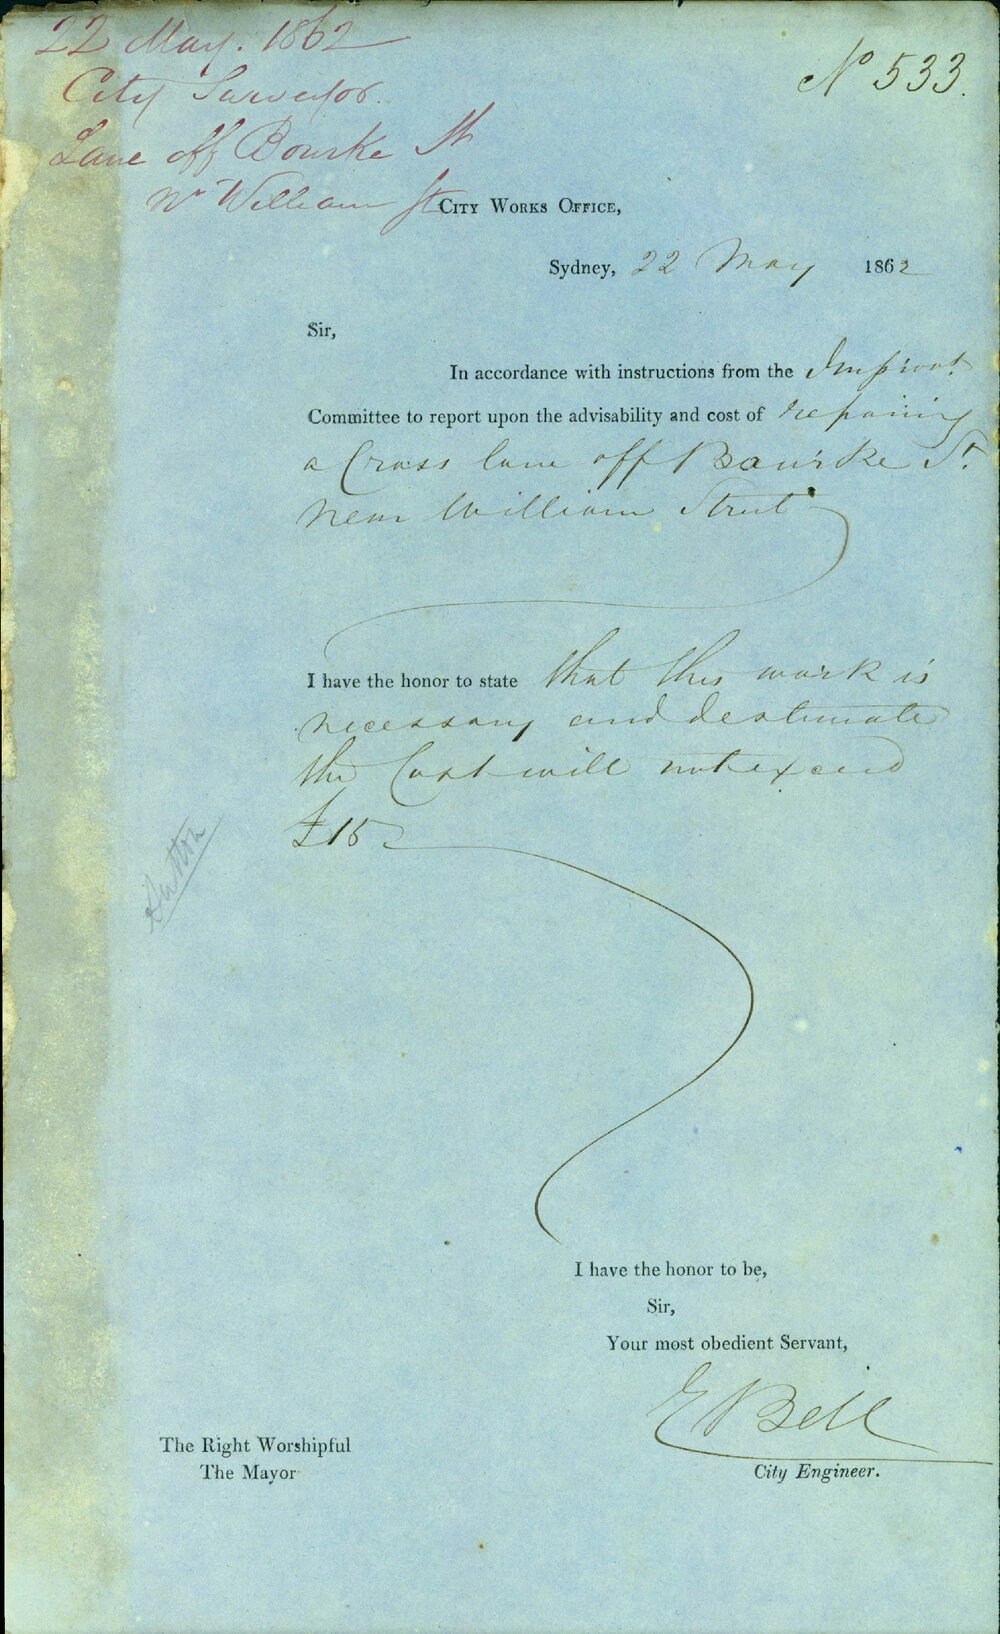 22 May. 1862
City Surveyor.
Lane off Bourke St
Nr William St
No 533.
CITY WORKS OFFICE,
Sydney, 22 May 1862
Sir,
In accordance with instructions from the Improvt.
Committee to report upon the advisability and cost of repairing
a Cross lane off Bourke St.
near William Street
I have the honor to state that this work is
necessary and I estimate
the Cost will not exceed
£15
Sutton
I have the honor to be,
Sir,
Your most obedient Servant,
E Bell
City Engineer.
The Right Worshipful
The Mayor